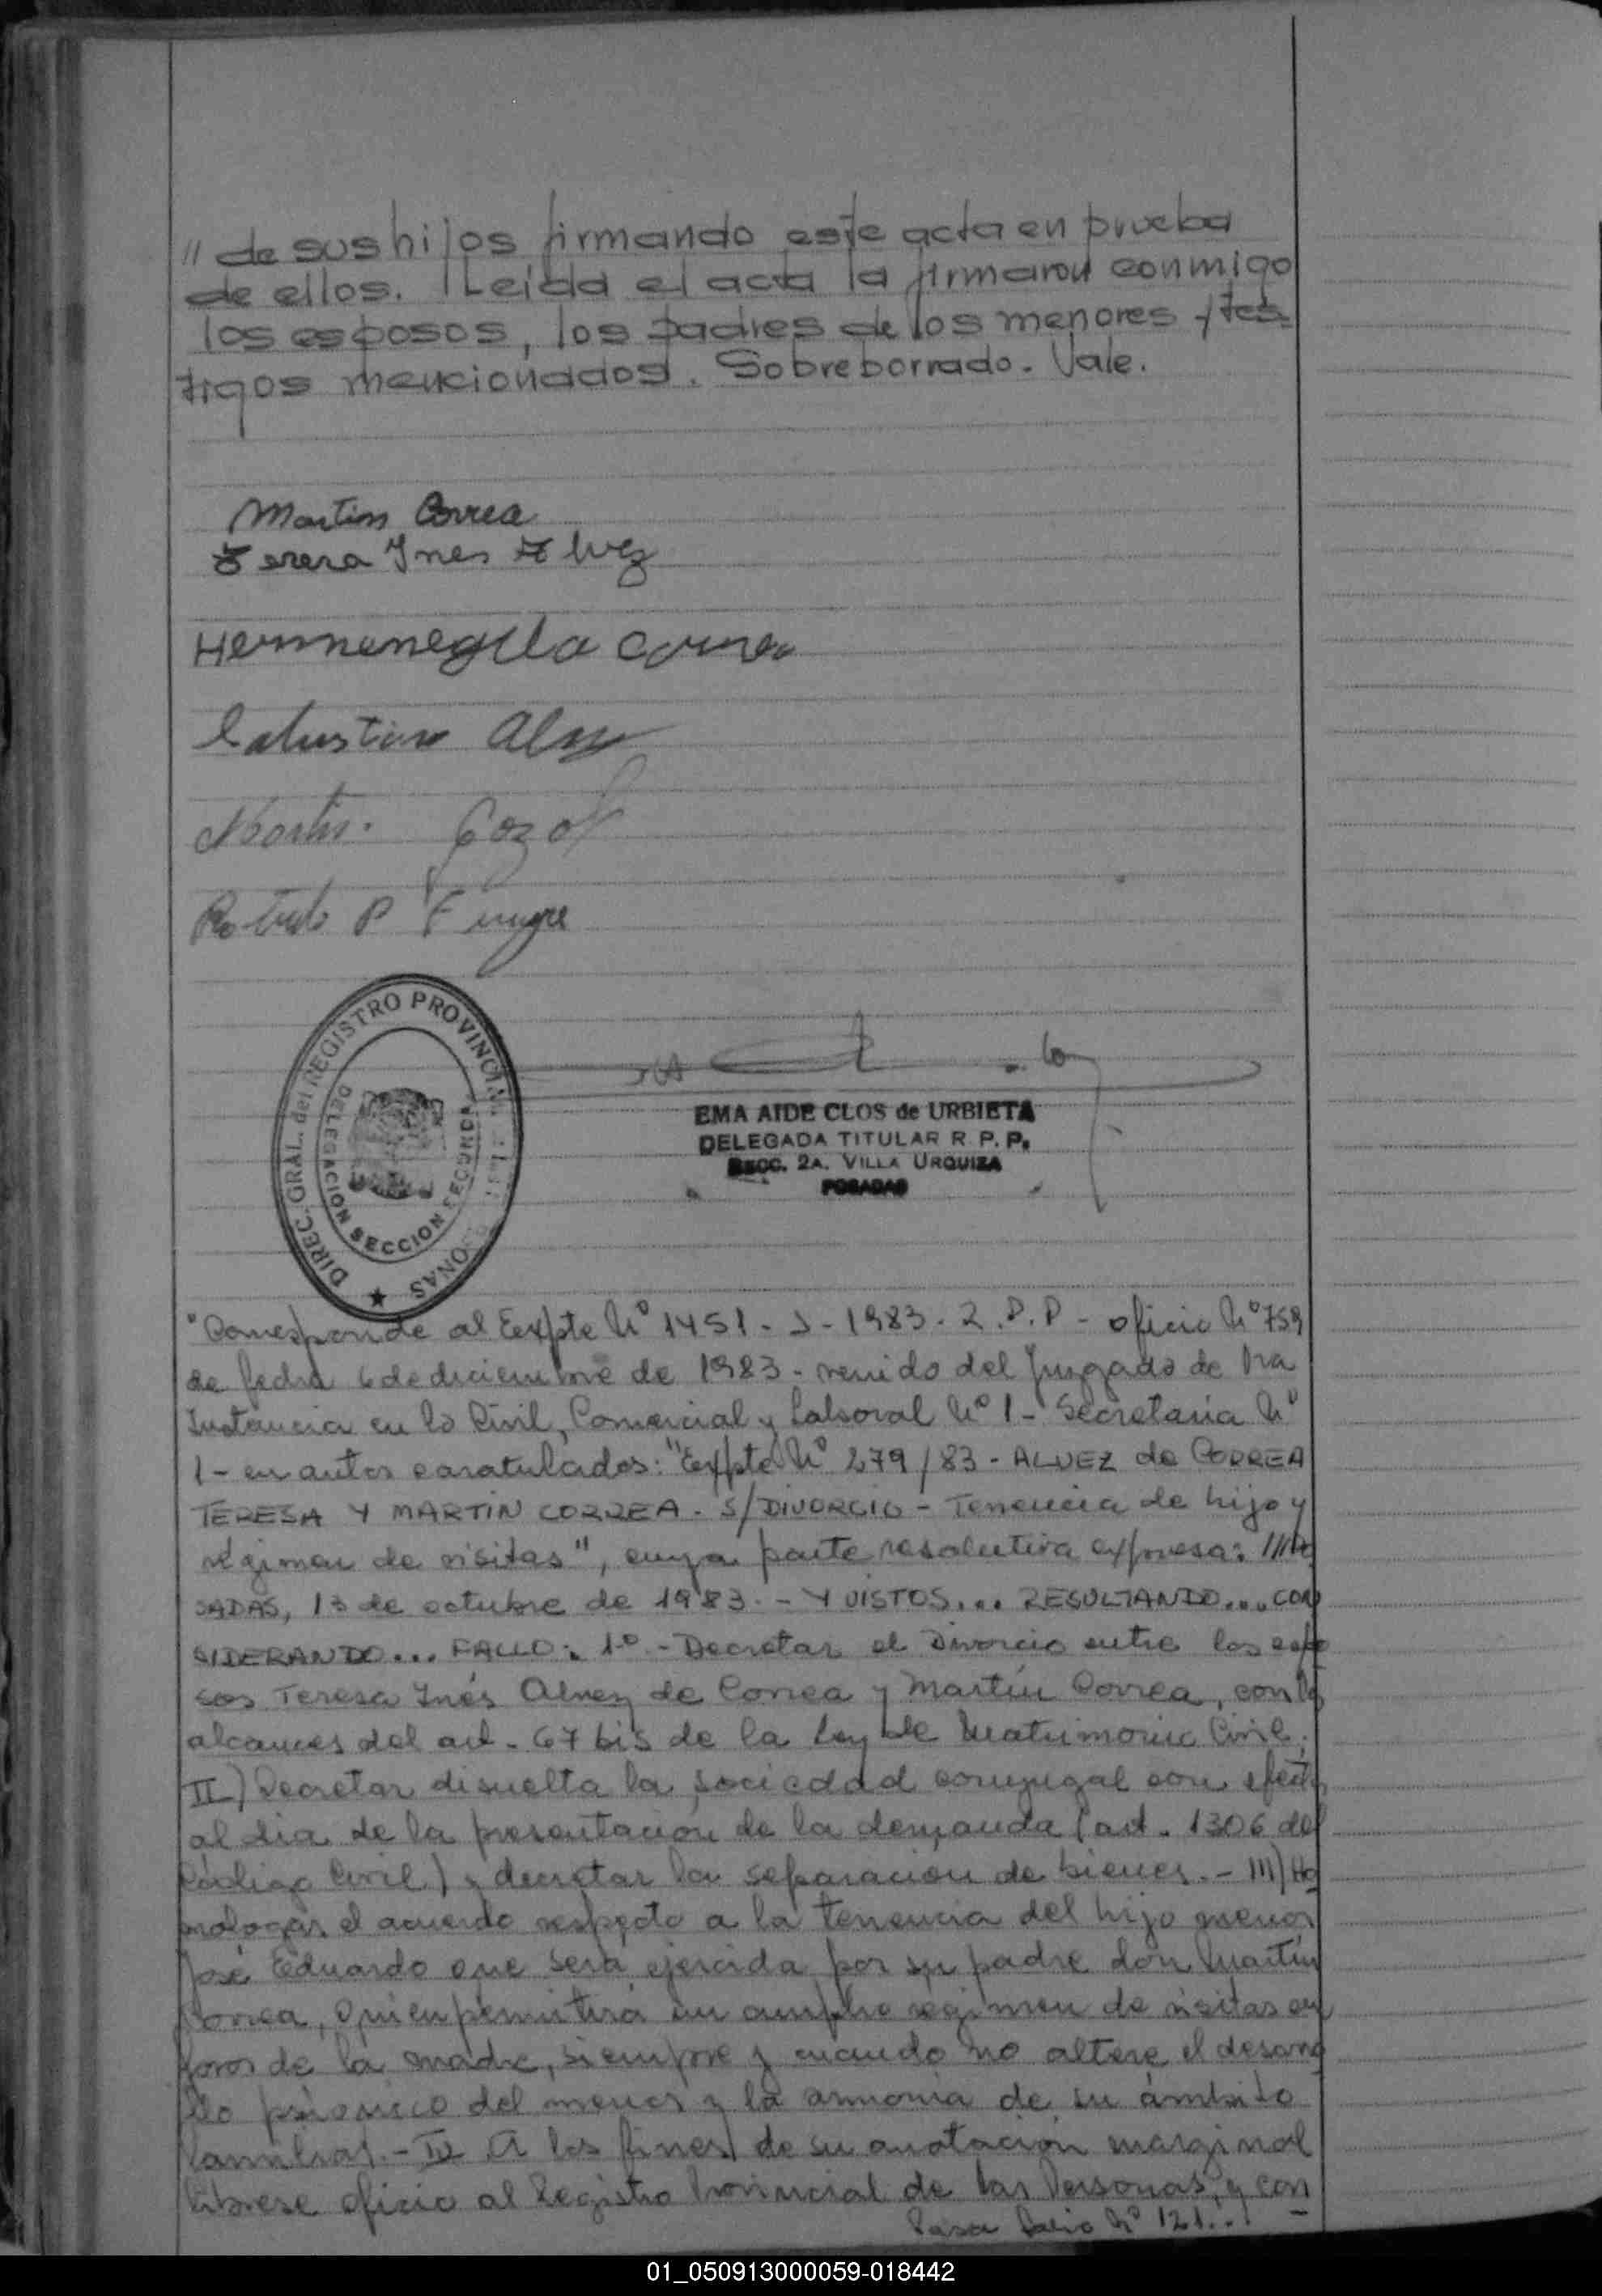 " de sus hijos firmando este acta en prueba
de ellos. Leida el acta la firmaron conmigo
los esposos, los padres de los menores y tes-
tigos mencionados. Sobreborrado. Vale.
Martin Correa
Teresa Ines Alvez
Hermenegilda Correa
DIREC. GRAL. del REGISTRO PROVINCIAL
DELEGACION SECCION SEGUNDA
EMA AIDE CLOS de URBIETA
DELEGADA TITULAR R. P. P.
SECC. 2A. VILLA URQUIZA
POSADAS
"Corresponde al Expte Nº 1451 - J - 1983 - R.P.P - oficio Nº 759
de fecha 6 de diciembre de 1983 - venido del Juzgado de 1ra
Instancia en lo Civil, Comercial y Laboral Nº 1 - Secretaria Nº
1 - en autos caratulados: "Expte Nº 279/83 - ALVEZ de CORREA
TERESA Y MARTIN CORREA - S/DIVORCIO - Tenencia de hijo y
régimen de visitas", cuya parte resolutiva expresa: ///Po
SADAS, 13 de octubre de 1983. - Y VISTOS... RESULTANDO... CON
SIDERANDO... FALLO: 1º - Decretar el Divorcio entre los espo
sos Teresa Inés Alvez de Correa y Martín Correa, con los
alcances del art. 67 bis de la Ley de Matrimonio Civil;
II) Decretar disuelta la sociedad conyugal con efecto
al dia de la presentación de la demanda (art. 1306 del
Código Civil) y decretar la separación de bienes. - III) Ho
mologar el acuerdo respecto a la tenencia del hijo menor
José Eduardo que será ejercida por su padre don Martín
Correa, quien permitirá un amplio régimen de visitas en
favor de la madre, siempre y cuando no altere el desarro
llo psíquico del menor y la armonia de su ámbito
familiar. - IV A los fines de su anotación marginal
líbrese oficio al Registro Provincial de las Personas, y con
Pasa folio Nº 121...
01_050913000059-018442